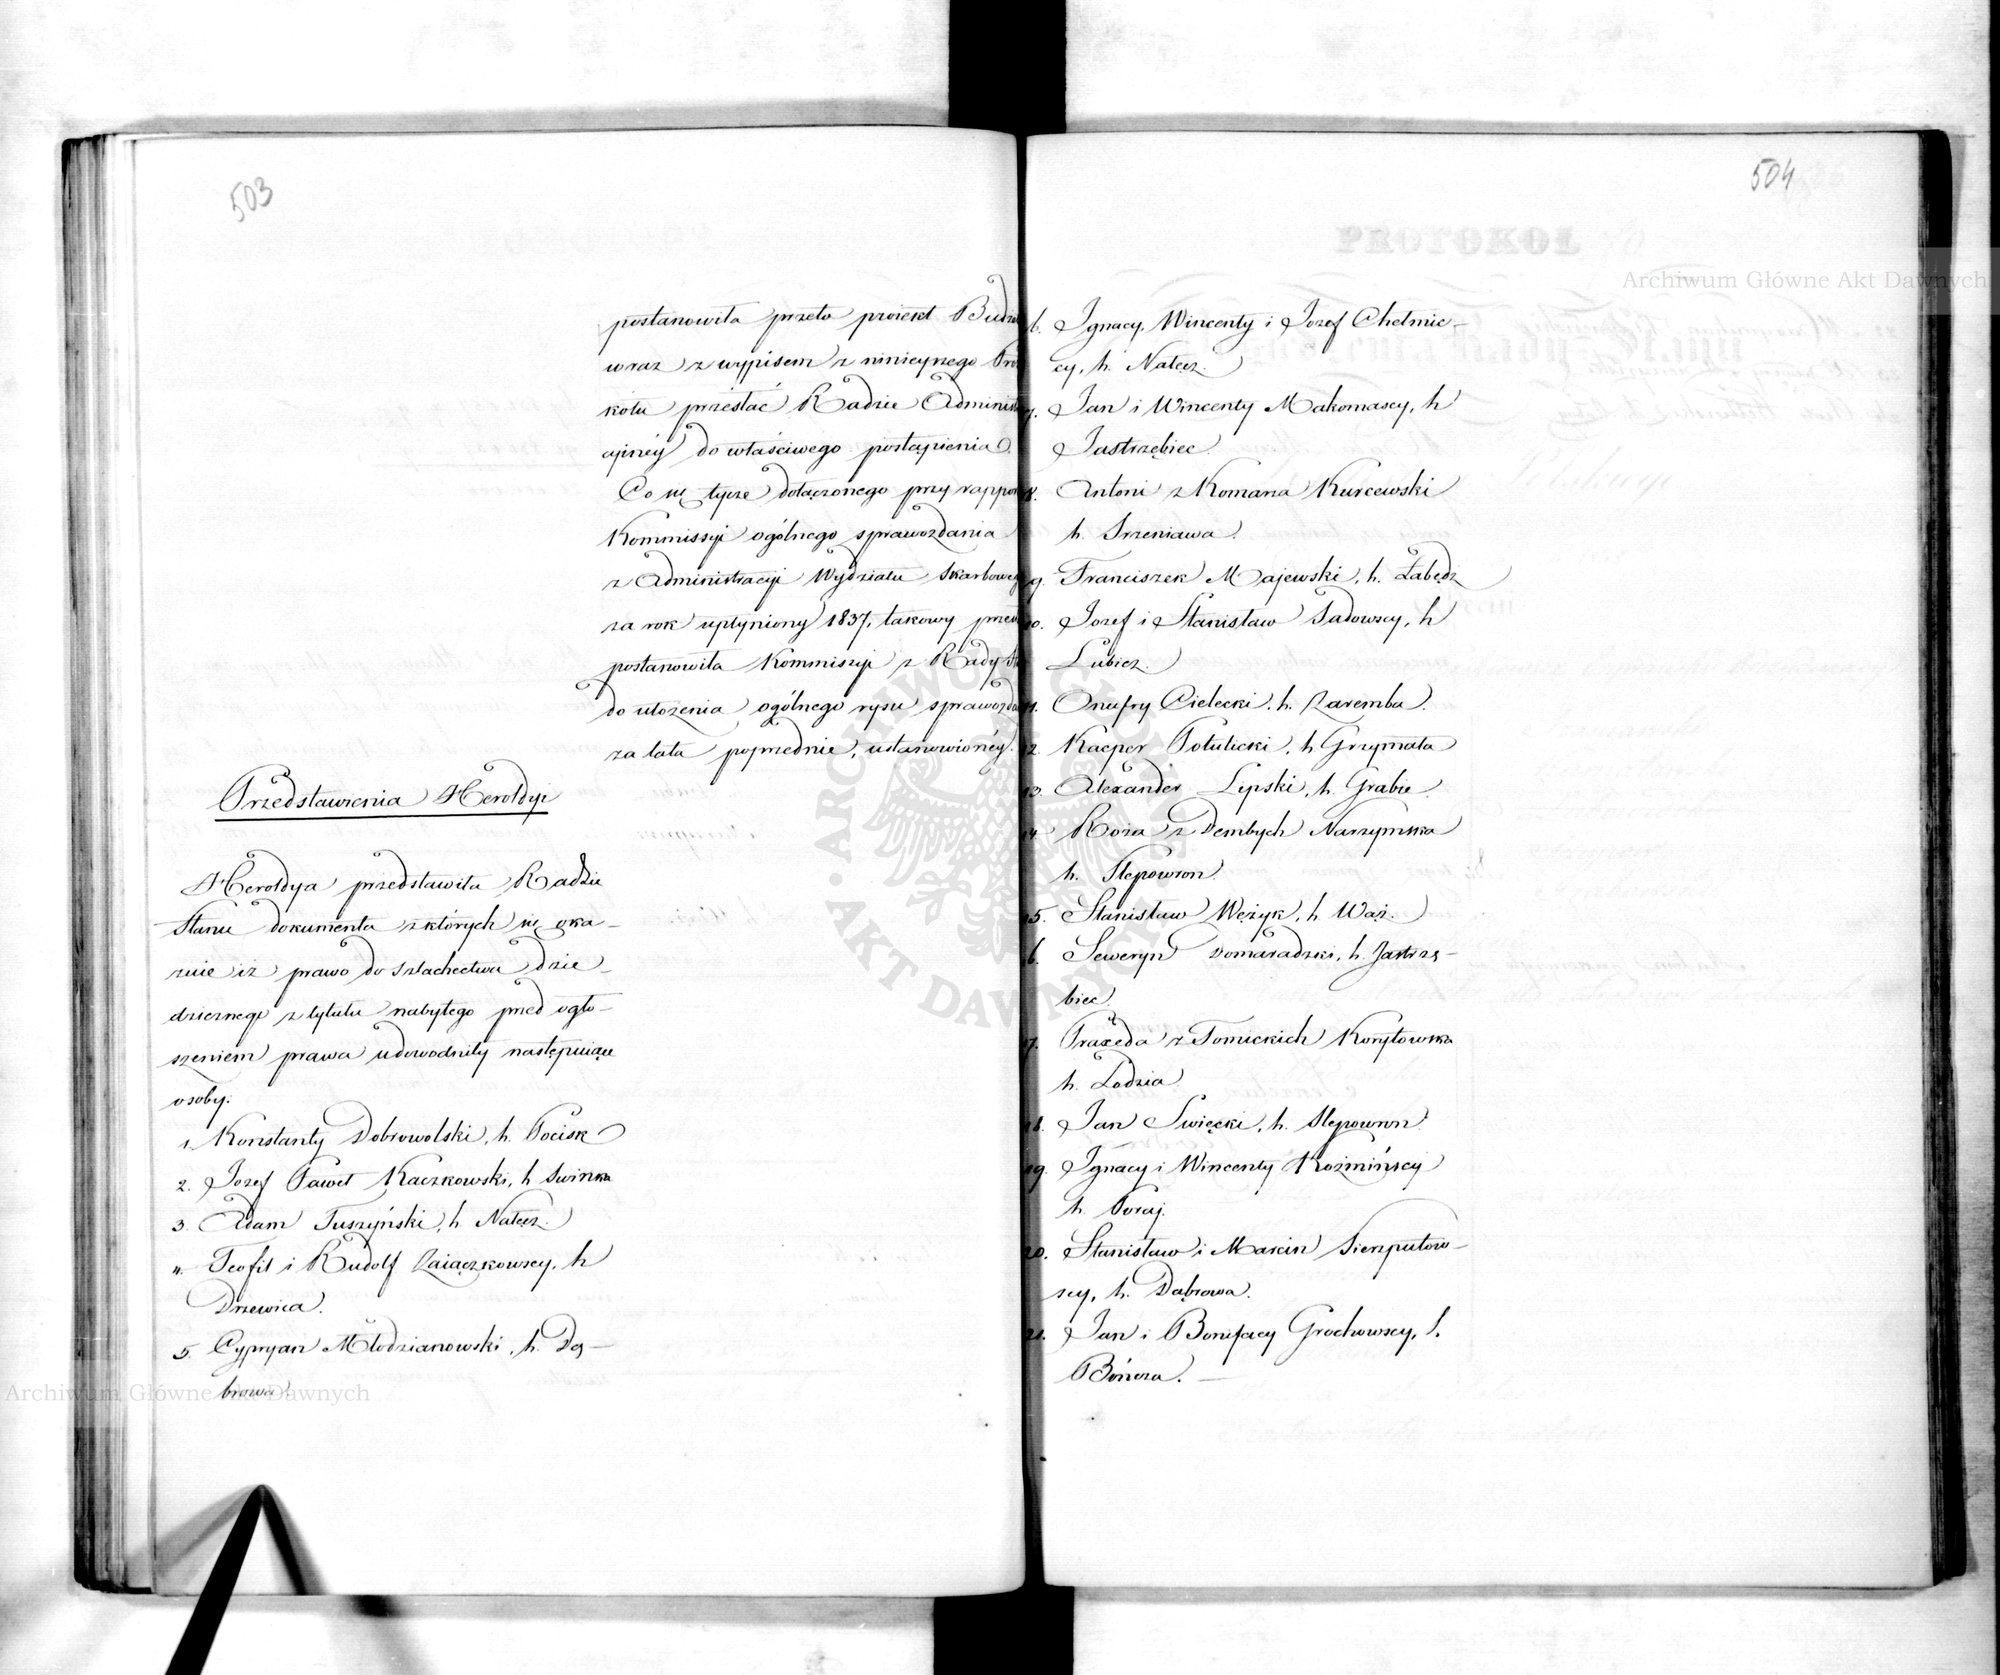 503
postanowiła przeto proiekt Budże
wraz z wypisem z ninieyszego Pro
kołu przesłać Radzie Administ
cyinéy do właściwego postąpienia.
Co się tycze dołączonego przy rappor
Kommissyi ogólnego sprawozdania
z Administracyi Wydziału Skarbowe
za rok upłyniony 1837, takowy
postanowiła Kommissyi z Rady
do ułożenia ogólnego rysu sprawozda
za lata poprzednie, ustanowionéy.
Przedstawienia Heroldyi
Heroldya przedstawiła Radzie
Stanu dokumenta z których się oka-
zuie iż prawo do szlachectwa dzie-
dzicznego z tytułu nabytego przed ogło-
szeniem prawa udowodniły następuiące
osoby:
1. Konstanty Dobrowolski, h. Pocisk
2. Jozef Paweł Kaczkowski, h Swinka
3. Adam Tuszyński, h. Nałęcz.
4. Teofil i Rudolf Zaiączkowscy, h
Drzewica.
5. Cypryan Młodzianowski, h. Dą-
browa.
504
6. Ignacy, Wincenty i Jozef Chełmic-
cy, h. Nałęcz.
7. Jan i Wincenty Makomascy, h
Jastrzębiec.
8. Antoni z Komana Kurcewski
h. Srzeniawa.
9. Franciszek Majewski, h. Łabędz
10. Jozef i Stanisław Sadowscy, h
Lubicz.
11. Onufry Cielecki, h. Zaremba.
12. Kacper Potulicki, h Grzymała
13. Alexander Lipski, h. Grabie.
14. Roża z Dembych Narzymska
h. Slepowron.
15. Stanisław Wężyk, h. Wąż.
16. Seweryn Domaradzki, h. Jastrzę-
biec.
17. Praxeda z Tomickich Korytowska
h. Łodzia.
18. Jan Swięcki, h. Slepowron.
19. Ignacy i Wincenty Koźmińscy
h. Poraj.
20. Stanisław i Marcin Sierzputow-
scy, h. Dąbrowa.
21. Jan i Bonifacy Grochowscy, h.
Bończa. —
Archiwum Główne Akt Dawnych
Archiwum Główne Akt Dawnych
ARCHIWUM GŁÓWNE
AKT DAWNYCH
PROTOKOŁ